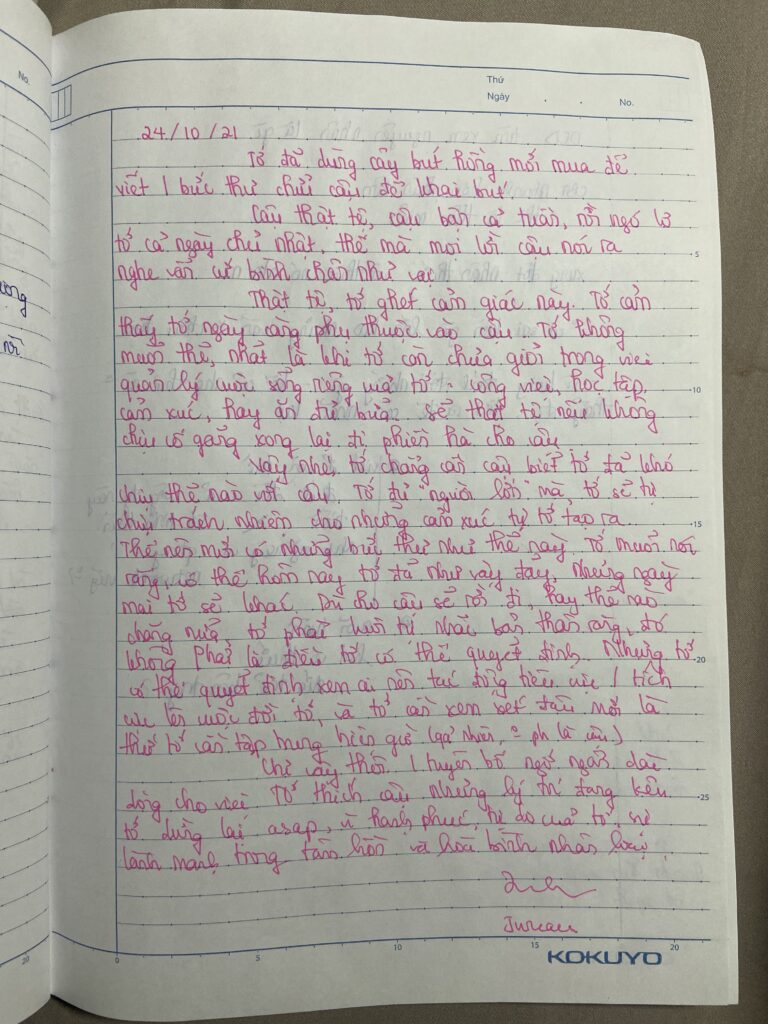 No.
Thứ
Ngày . . No.
24/10/21
Tớ đã dùng cây bút hồng mới mua để
viết 1 bức thư chửi cậu để khai bút.
Cậu thật tệ, cậu bận cả tuần, rồi ngó lơ
tớ cả ngày chủ nhật, thế mà mọi lời cậu nói ra
nghe vẫn cứ bình chân như vại.
Thật tệ, tớ ghét cảm giác này. Tớ cảm
thấy tớ ngày càng phụ thuộc vào cậu. Tớ không
muốn thế, nhất là khi tớ còn chưa giỏi trong việc
quản lý cuộc sống riêng của tớ - công việc, học tập,
cảm xúc, hay ăn đủ bữa. sẽ thật tệ nếu không
chịu cố gắng xong lại đi phiền hà cho cậu
Vậy nhé, tớ chẳng cần cậu biết tớ đã khó
chịu thế nào với cậu. Tớ đủ "người lớn" mà, tớ sẽ tự
chịu trách nhiệm cho những cảm xúc tự tớ tạo ra.
Thế nên mới có những bức thư như thế này. Tớ muốn nói
rằng, có thể hôm nay tớ đã như vậy đấy, nhưng ngày
mai tớ sẽ khác. Dù cho cậu sẽ rời đi, hay thế nào
chăng nữa, tớ phải luôn tự nhắc bản thân rằng, đó
không phải là điều tớ có thể quyết định. Nhưng tớ
có thể quyết định xem ai nên tác động tiêu cực / tích
cực lên cuộc đời tớ, và tớ cần xem xét đâu mới là
thứ tớ cần tập trung bây giờ (tất nhiên, ph là cậu)
Chỉ vậy thôi. 1 tuyên bố ngố ngắn dài
dòng cho việc Tớ thích cậu nhưng lý trí đang kêu
tớ dừng lại asap, vì hạnh phúc, tự do của tớ, sự
lành mạnh trong tâm hồn và hoà bình nhân loại.
5
10
15
20
25
0 5 10 15 20
KOKUYO